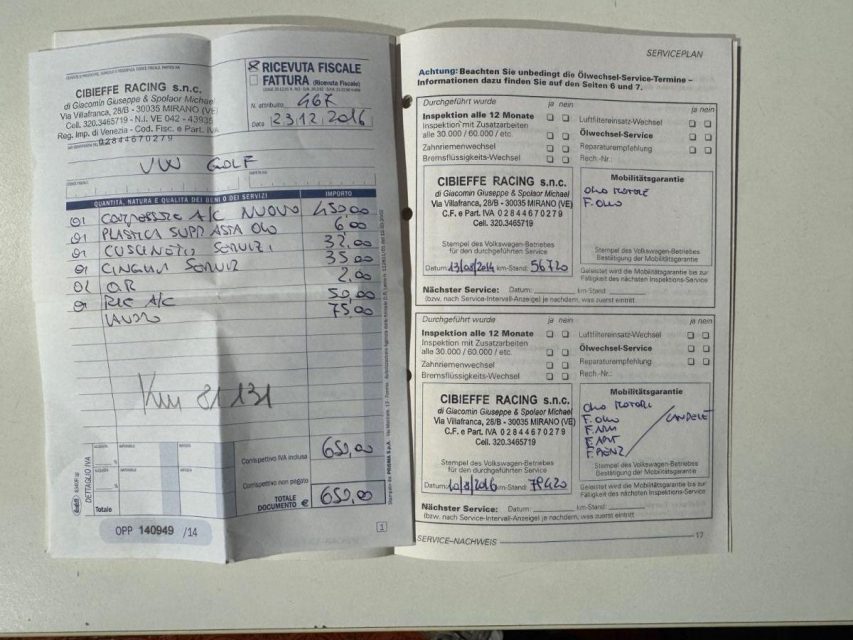 CIBIEFFE RACING s.n.c.
di Giacomin Giuseppe & Spolaor Michael
Via Villafranca, 28/B - 30035 MIRANO (VE)
Cell. 320.3465719 - N.I. VE 042 -
Reg. Imp. di Venezia - Cod. Fisc. e Part. IVA
02844670279
RICEVUTA FISCALE
FATTURA (Ricevuta Fiscale)
N. attribuito 467
Data 23/12/2016
VW GOLF
QUANTITÀ, NATURA E QUALITÀ DEI BENI O DEI SERVIZI IMPORTO
01 COMPRESSORE A/C NUOVO 450,00
01 PLASTICA SUPP ASTA OLIO 6,00
01 CUSCINETTO SERVIZI 32,00
01 CINGHIA SERVIZ 35,00
02 OR 2,00
01 RIC A/C 50,00
LAVORO 75,00
Km 81131
DETTAGLIO IVA
Corrispettivo IVA inclusa 650,00
Corrispettivo non pagato
Totale
TOTALE DOCUMENTO € 650,00
OPP 140949 /14
1
SERVICEPLAN
Achtung: Beachten Sie unbedingt die Ölwechsel-Service-Termine –
Informationen dazu finden Sie auf den Seiten 6 und 7.
Durchgeführt wurde ja nein ja nein
Inspektion alle 12 Monate Luftfiltereinsatz-Wechsel
Inspektion mit Zusatzarbeiten
alle 30.000 / 60.000 / etc. Ölwechsel-Service
Zahnriemenwechsel Reparaturempfehlung
Bremsflüssigkeits-Wechsel Rech.-Nr.:
CIBIEFFE RACING s.n.c.
di Giacomin Giuseppe & Spolaor Michael
Via Villafranca, 28/B - 30035 MIRANO (VE)
C.F. e Part. IVA 02844670279
Cell. 320.3465719
Stempel des Volkswagen-Betriebes
für den durchgeführten Service
Datum: 13/08/2014 km-Stand: 56720
Mobilitätsgarantie
OLIO MOTORE
F. OLIO
Stempel des Volkswagen-Betriebes
Bestätigung der Mobilitätsgarantie
Geleistet wird die Mobilitätsgarantie bis zur
Fälligkeit des nächsten Inspektions-Service
Nächster Service: Datum: km-Stand:
(bzw. nach Service-Intervall-Anzeige) je nachdem, was zuerst eintritt
Durchgeführt wurde ja nein ja nein
Inspektion alle 12 Monate Luftfiltereinsatz-Wechsel
Inspektion mit Zusatzarbeiten
alle 30.000 / 60.000 / etc. Ölwechsel-Service
Zahnriemenwechsel Reparaturempfehlung
Bremsflüssigkeits-Wechsel Rech.-Nr.:
CIBIEFFE RACING s.n.c.
di Giacomin Giuseppe & Spolaor Michael
Via Villafranca, 28/B - 30035 MIRANO (VE)
C.F. e Part. IVA 02844670279
Cell. 320.3465719
Stempel des Volkswagen-Betriebes
für den durchgeführten Service
Datum: 10/8/2016 km-Stand: 79420
Mobilitätsgarantie
OLIO MOTORE
F. OLIO CANDELE
F. ARIA
F. ABIT
F. BENZ
Stempel des Volkswagen-Betriebes
Bestätigung der Mobilitätsgarantie
Geleistet wird die Mobilitätsgarantie bis zur
Fälligkeit des nächsten Inspektions-Service
Nächster Service: Datum: km-Stand:
(bzw. nach Service-Intervall-Anzeige) je nachdem, was zuerst eintritt
SERVICE–NACHWEIS 17